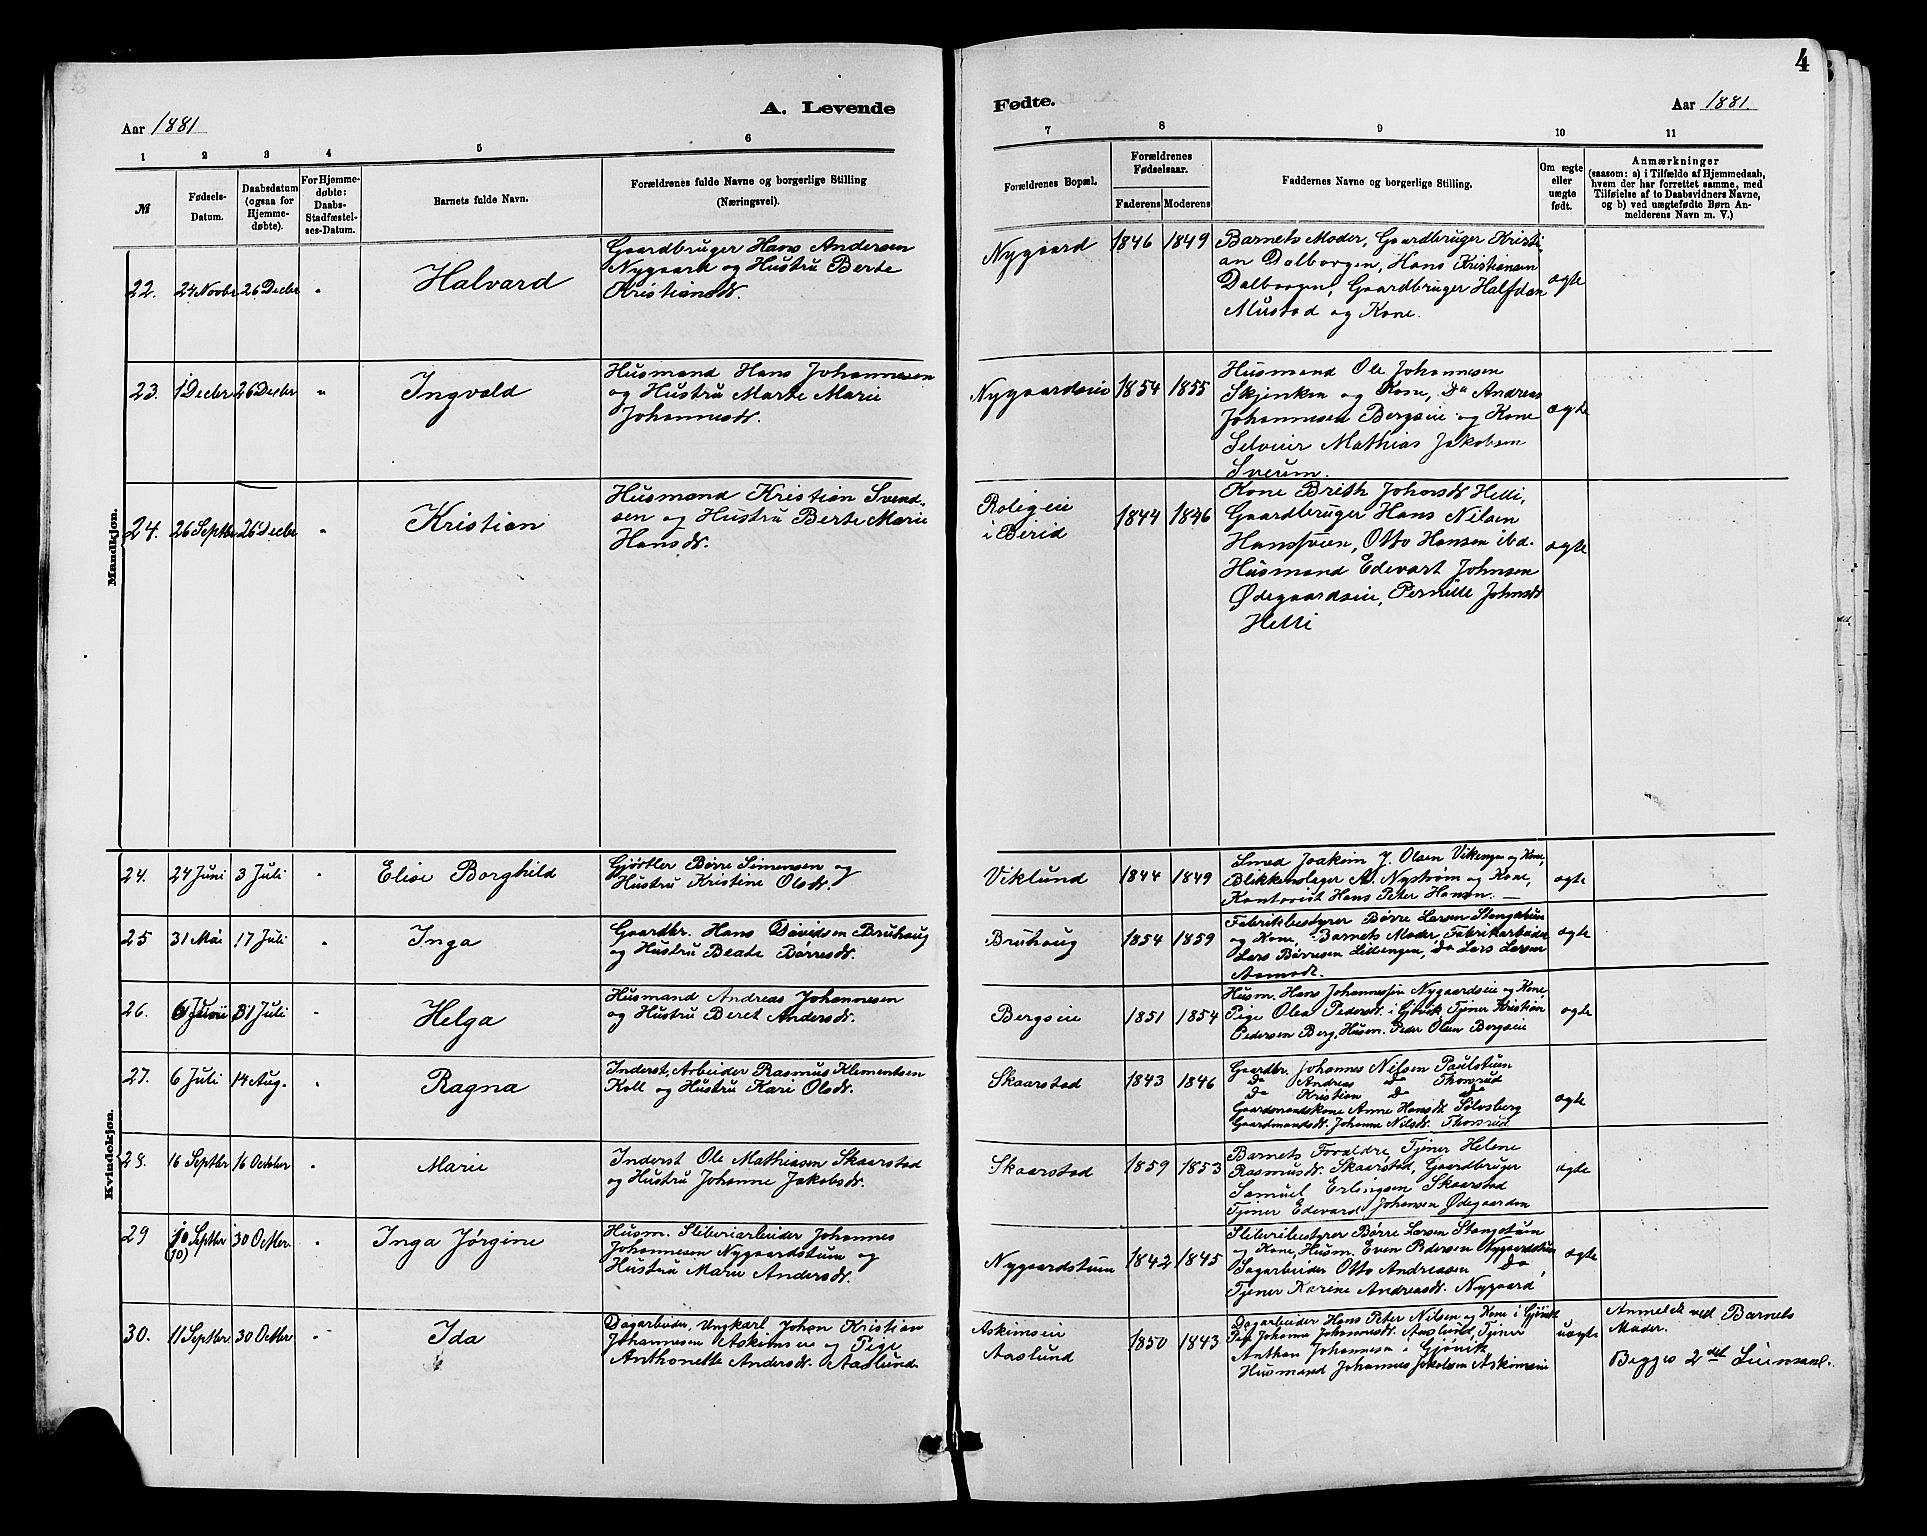 4
A. Levende Fødte.
Aar 1881
Aar 1881.
1 2 3 4 5 6 7 8 9 10 11
№
Fødsels-
Datum.
Daabsdatum
(ogsaa for
Hjemme-
døbte).
For Hjemme-
døbte:
Daabs-
Stadfæstel-
ses-Datum.
Barnets fulde Navn.
Forældrenes fulde Navne og borgerlige Stilling
(Næringsvei).
Forældrenes Bopæl.
Forældrenes
Fødselsaar.
Faderens Moderens
Faddernes Navne og borgerlige Stilling.
Om ægte
eller
uægte
født.
Anmærkninger
(saasom: a) i Tilfælde af Hjemmedaab,
hvem der har forrettet samme, med
Tilføielse af to Daabsvidners Navne,
og b) ved uægtefødte Børn An-
melderens Navn m. V.)
Mandkjøn.
22. 24 Novbr 26 Decbr "
Halvard
Gaardbruger Hans Andersen
Nygaard og Hustru Berte
Kristiansdr.
Nygaard 1846 1849
Barnets Moder, Gaardbruger Kristi-
an Dalborgen, Hans Kristiansen
Dalborgen, Gaardbruger Halfdan
Mustad og Kone.
ægte
23. 1 Decbr 26 Decbr "
Ingvald
Husmand Hans Johannesen
og Hustru Marte Marie
Johannesdr.
Nygaardseie 1854 1855
Husmand Ole Johannesen
Skjenken og Kone, Do Andreas
Johannesen Bergseie og Kone
Selveier Mathias Jakobsen
Sverum.
ægte
24. 26 Septbr 26 Decbr "
Kristian
Husmand Kristian Svend-
sen og Hustru Berte Marie
Hansdr.
Roligeie
i Birid
1844 1846
Kone Brith Johnsdr Helli,
Gaardbruger Hans Nilsen
Hansveen, Otto Hansen ibd.
Husmand Edevart Johnsen
Ødegaardseie, Pernille Johnsdr
Helli
ægte
Kvindekjøn.
24. 24 Juni 3 Juli "
Elise Borghild
Gjørtler Børre Simensen og
Hustru Kristine Olsdr.
Viklund 1844 1849
Smed Joakim J. Olsen Vikengen og Kone,
Blikkenslager A. Nystrøm og Kone,
Kontorist Hans Peter Hansen.
ægte
25 31 Mai 17 Juli "
Inga
Gaardbr. Hans Davidsen Bruhaug
og Hustru Beate Børresdr.
Bruhaug 1854 1859
Fabrikbestyrer Børre Larsen Stangstuen
og Kone, Barnets Moder, Fabrikarbeider
Lars Børresen Lillengen, Do Lars Larsen
Aamodt.
ægte
26. 6 Juni 31 Juli "
Helga
Husmand Andreas Johannesen
og Hustru Beret Andersdr.
Bergseie 1851 1854
Husm. Hans Johannessen Nygaardseie og Kone,
Pige Olea Pedersdr. i Gjøvik Tjener Kristian
Pedersen Berg, Husm. Peder Olsen Bergseie
ægte
27. 6 Juli 14 Aug. "
Ragna
Inderst, Arbeider Rasmus Klementsen
Koll og Hustru Kari Olsdr.
Skaarstad 1843 1846
Gaardbr. Johannes Nilsen Paulstuen
Do Andreas Do Thorsrud
Do Kristian Do Do
Gaardmandskone Anne Hansdr. Sølvsberg
Gaardmandsdr. Johanne Nilsdr. Thorsrud
ægte
28. 16 Septbr 16 October "
Marie
Inderst Ole Mathiasen Skaarstad
og Hustru Johanne Jakobsdr.
Skaarstad 1859 1853
Barnets Forældre, Tjener Helene
Rasmusdr. Skaarstad, Gaardbruger
Samuel Erlingsen Skaarstad
Tjener Edevard Johansen Ødegaarden
ægte
29 10 Septbr 30 Octbr. "
(10)
Inga Jørgine
Husm. Sliberiarbeider Johannes
Johannesen Nygaardstuen og
Hustru Marie Andersdr.
Nygaardstuen 1842 1845
Sliberibestyrer Børre Larsen Stangstuen
og Kone, Husm. Even Pedersen Nygaardstuen
Sagarbeider Otto Andreasen Do,
Tjener Karine Andreasdr. Nygaard
ægte
30. 11 Septbr 30 Octbr "
Ida
Dagarbeider, Ungkarl Johan Kristian
Johannesen Askimseie og Pige
Anthonette Andersdr. Aaslund
Askimseie
Aaslund
1850 1843
Dagarbeider Hans Peter Nilsen og Kone i Gjøvik
Pige Johanne Johannesdr. Aaslund, Tjener
Anthon Johannesen i Gjøvik
Husmand Johannes Jakobsen Askimseie
uægte
Anmeldt ved Barnets
Moder.
Begges 2det Leiersmaal.